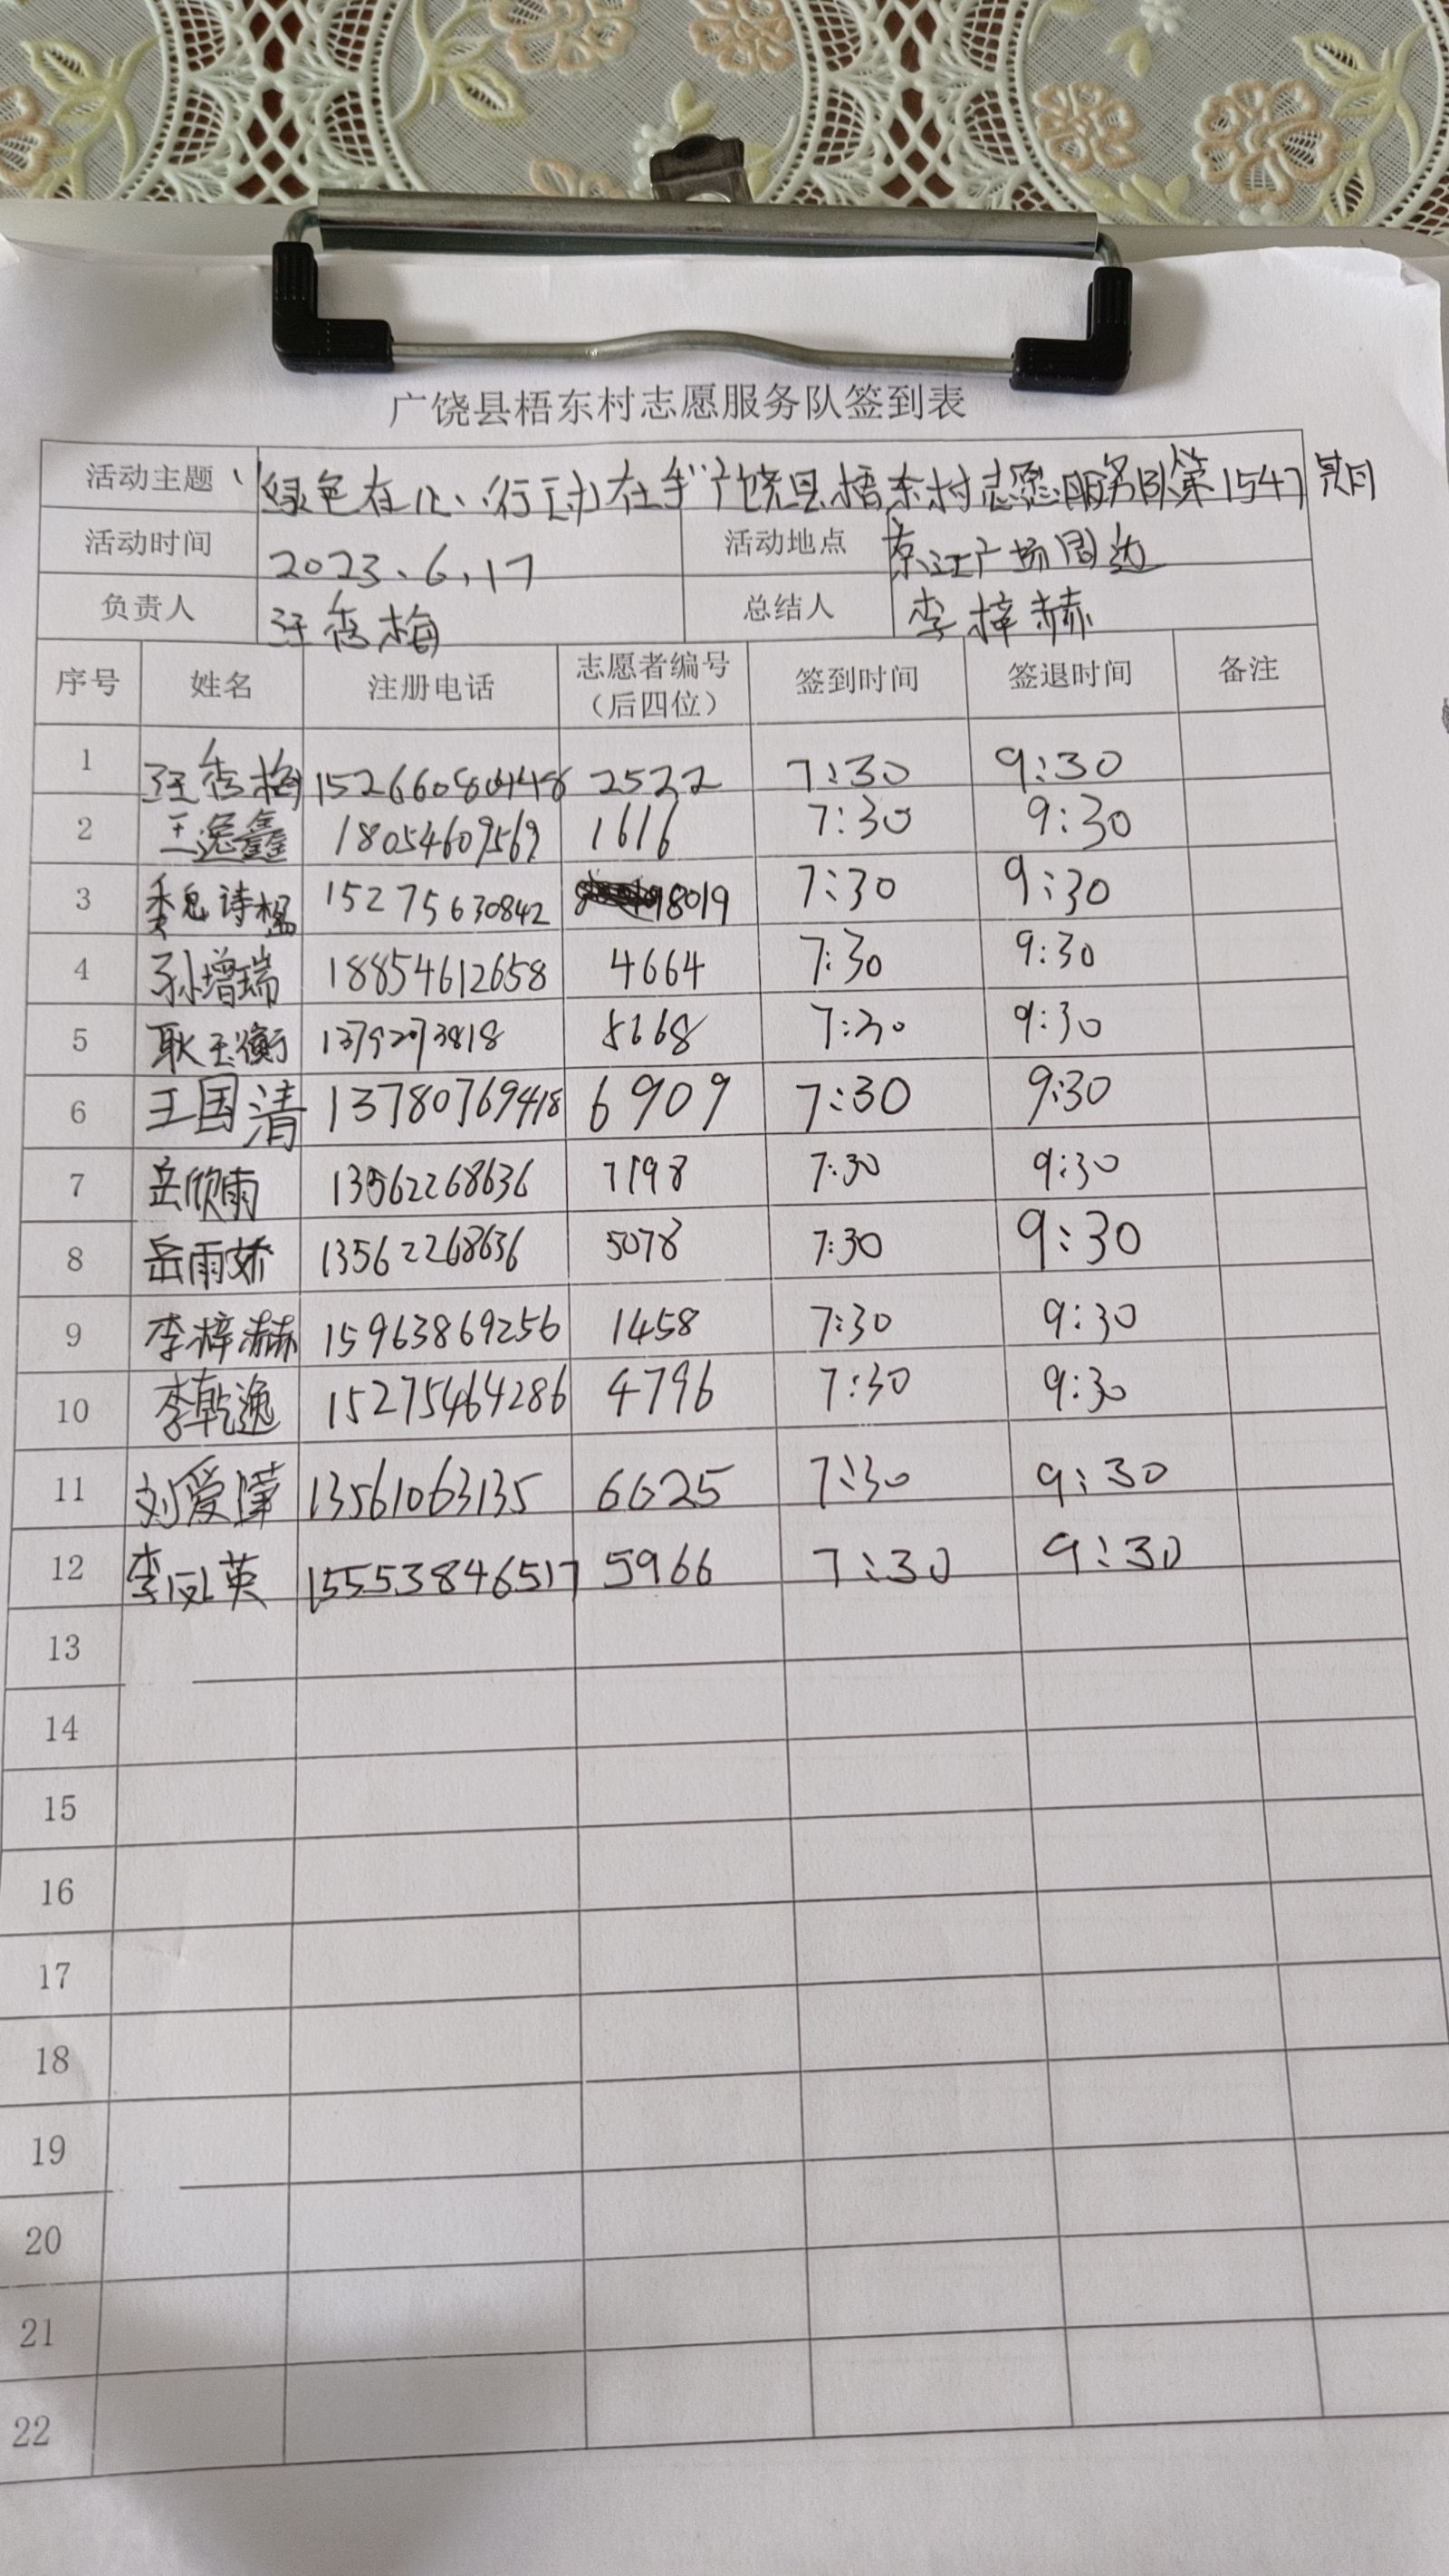 广饶县梧东村志愿服务队签到表
活动主题 “绿色在心、行动在手”广饶县梧东村志愿服务队第1547期
活动时间 2023.6.17 活动地点 广场周边
负责人 汪秀梅 总结人 李梓赫
序号 姓名 注册电话 志愿者编号（后四位） 签到时间 签退时间 备注
1 汪秀梅 2522 7:30 9:30
2 王逸鑫 18054609569 1616 7:30 9:30
3 魏诗楹 15275630842 8019 7:30 9:30
4 孙增瑞 18854612658 4664 7:30 9:30
5 耿玉衡 7:30 9:30
6 王国清 13780769418 6909 7:30 9:30
7 岳欣雨 13562268636 7198 7:30 9:30
8 岳雨娇 13562268636 5078 7:30 9:30
9 李梓赫 15963869256 1458 7:30 9:30
10 李乾逸 15275464286 4796 7:30 9:30
11 刘爱 13561063135 6625 7:30 9:30
12 李凤英 15553846517 5966 7:30 9:30
13
14
15
16
17
18
19
20
21
22